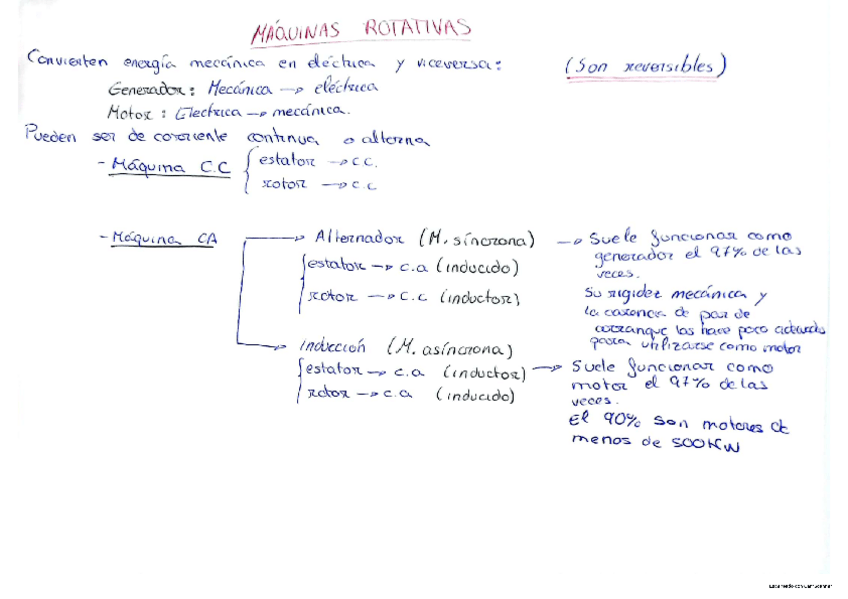 MÁQUINAS ROTATIVAS
Convierten energía mecánica en eléctrica y viceversa: (Son reversibles)
Generador: Mecánica → eléctrica
Motor: Electrica → mecánica.
Pueden ser de corriente continua o alterna
- Máquina C.C { estator → c.c.
rotor → c.c
- Máquina CA
Alternador (M. síncrona) → Suele funcionar como
generador el 97% de las
veces.
{ estator → c.a (inducido)
rotor → c.c (inductor)
Su rigidez mecánica y
la carencia de par de
arranque las hace poco
para utilizarse como motor
Inducción (M. asíncrona)
{ estator → c.a (inductor) → Suele funcionar como
motor el 97% de las
veces.
rotor → c.a (inducido)
El 90% son motores de
menos de 500KW